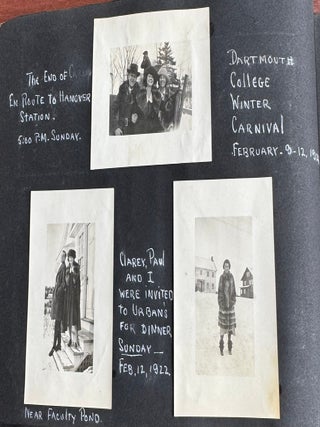 The End of
En Route to Hanover
Station.
5:00 P.M. Sunday.
Dartmouth
College
Winter
Carnival
February. 9-12, 1922
Clarey, Paul
and I
were invited
to Urban's
for dinner
Sunday —
Feb, 12, 1922
Near Faculty Pond.